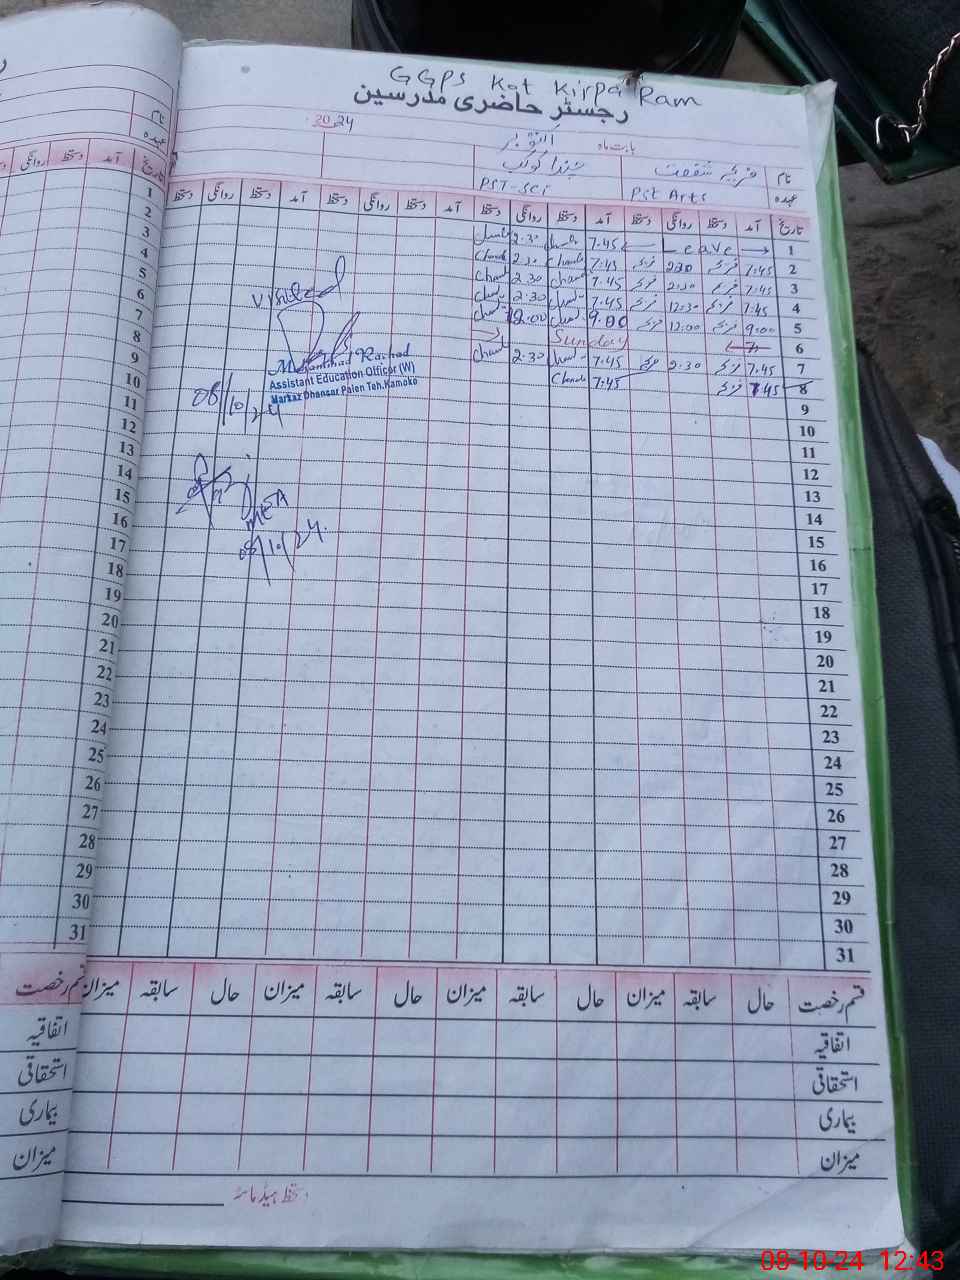 GGPS Kot Kirpa Ram
رجسٹر حاضری مدرسین
بابت ماہ اکتوبر 2024
نام شفقت چندا کوکب
عہدہ Pst Arts PST-Sci
تاریخ آمد دستخط روانگی دستخط آمد دستخط روانگی دستخط آمد دستخط روانگی دستخط آمد دستخط روانگی دستخط
1 ← Leave → 7.45 2.30
2 7:45 2:30 7:45 Chanda 2.30 Chanda
3 7:45 2:30 7.45 Chand 2.30 Chand
4 7:45 12:30 7.45 2.30
5 9:00 12:00 9.00 12.00
6 Sunday
7 7:45 2:30 7.45 2.30 Chand
8 7:45 7:45 Chanda
9
10
11
12
13
14
15
16
17
18
19
20
21
22
23
24
25
26
27
28
29
30
31
Visited
Muhammad Rashad
Assistant Education Officer (W)
Markaz Dhansar Paien Teh.Kamoke
08/10/24
MEA
08/10/24.
قسم رخصت حال سابقہ میزان حال سابقہ میزان حال سابقہ میزان حال سابقہ میزان
اتفاقیہ
استحقاقی
بیماری
میزان
دستخط ہیڈ ماسٹر
نام
عہدہ
تاریخ آمد دستخط روانگی دستخط
1
2
3
4
5
6
7
8
9
10
11
12
13
14
15
16
17
18
19
20
21
22
23
24
25
26
27
28
29
30
31
قسم رخصت
اتفاقیہ
استحقاقی
بیماری
میزان
08-10-24 12:43